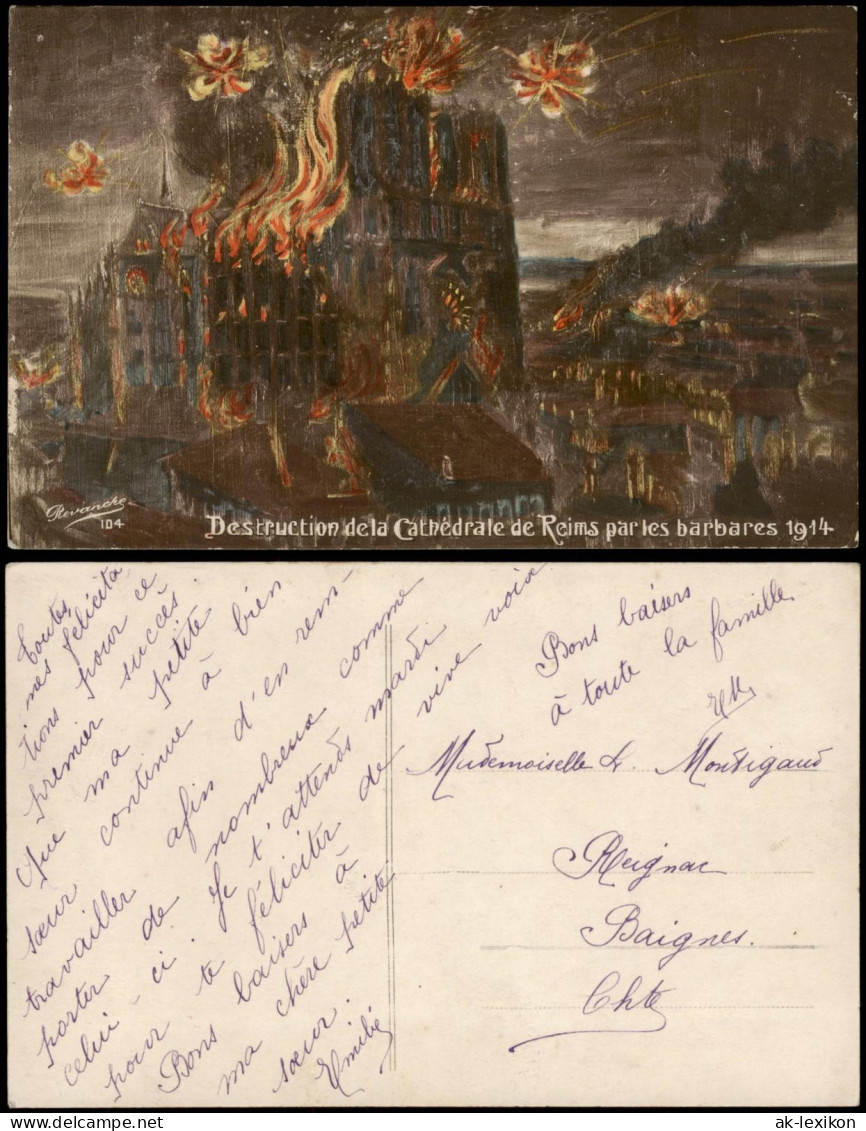 Revanche
104
Destruction de la Cathédrale de Reims par les barbares 1914
Toutes
mes félicita
tions pour ce
premier succès.
Que ma petite
sœur continue à bien
travailler afin d'en rem-
porter de nombreux comme
celui-ci. Je t'attends mardi
pour te féliciter de vive voix
Bons baisers à
ma chère petite
sœur.
Emilie
Bons baisers
à toute la famille
Mademoiselle
Reignac
Baignes.
Chte
ak-lexikon